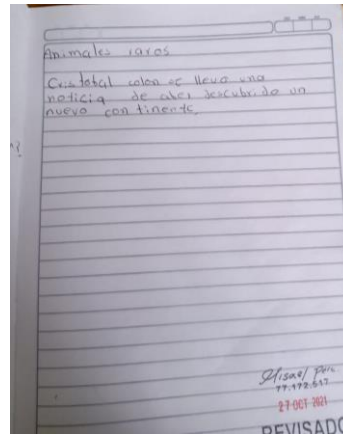 Animales raros
Cristobal colon se llevo una
noticia de aber descubrido un
nuevo continente.
Misael
77.172.517
27 OCT 2021
REVISADO